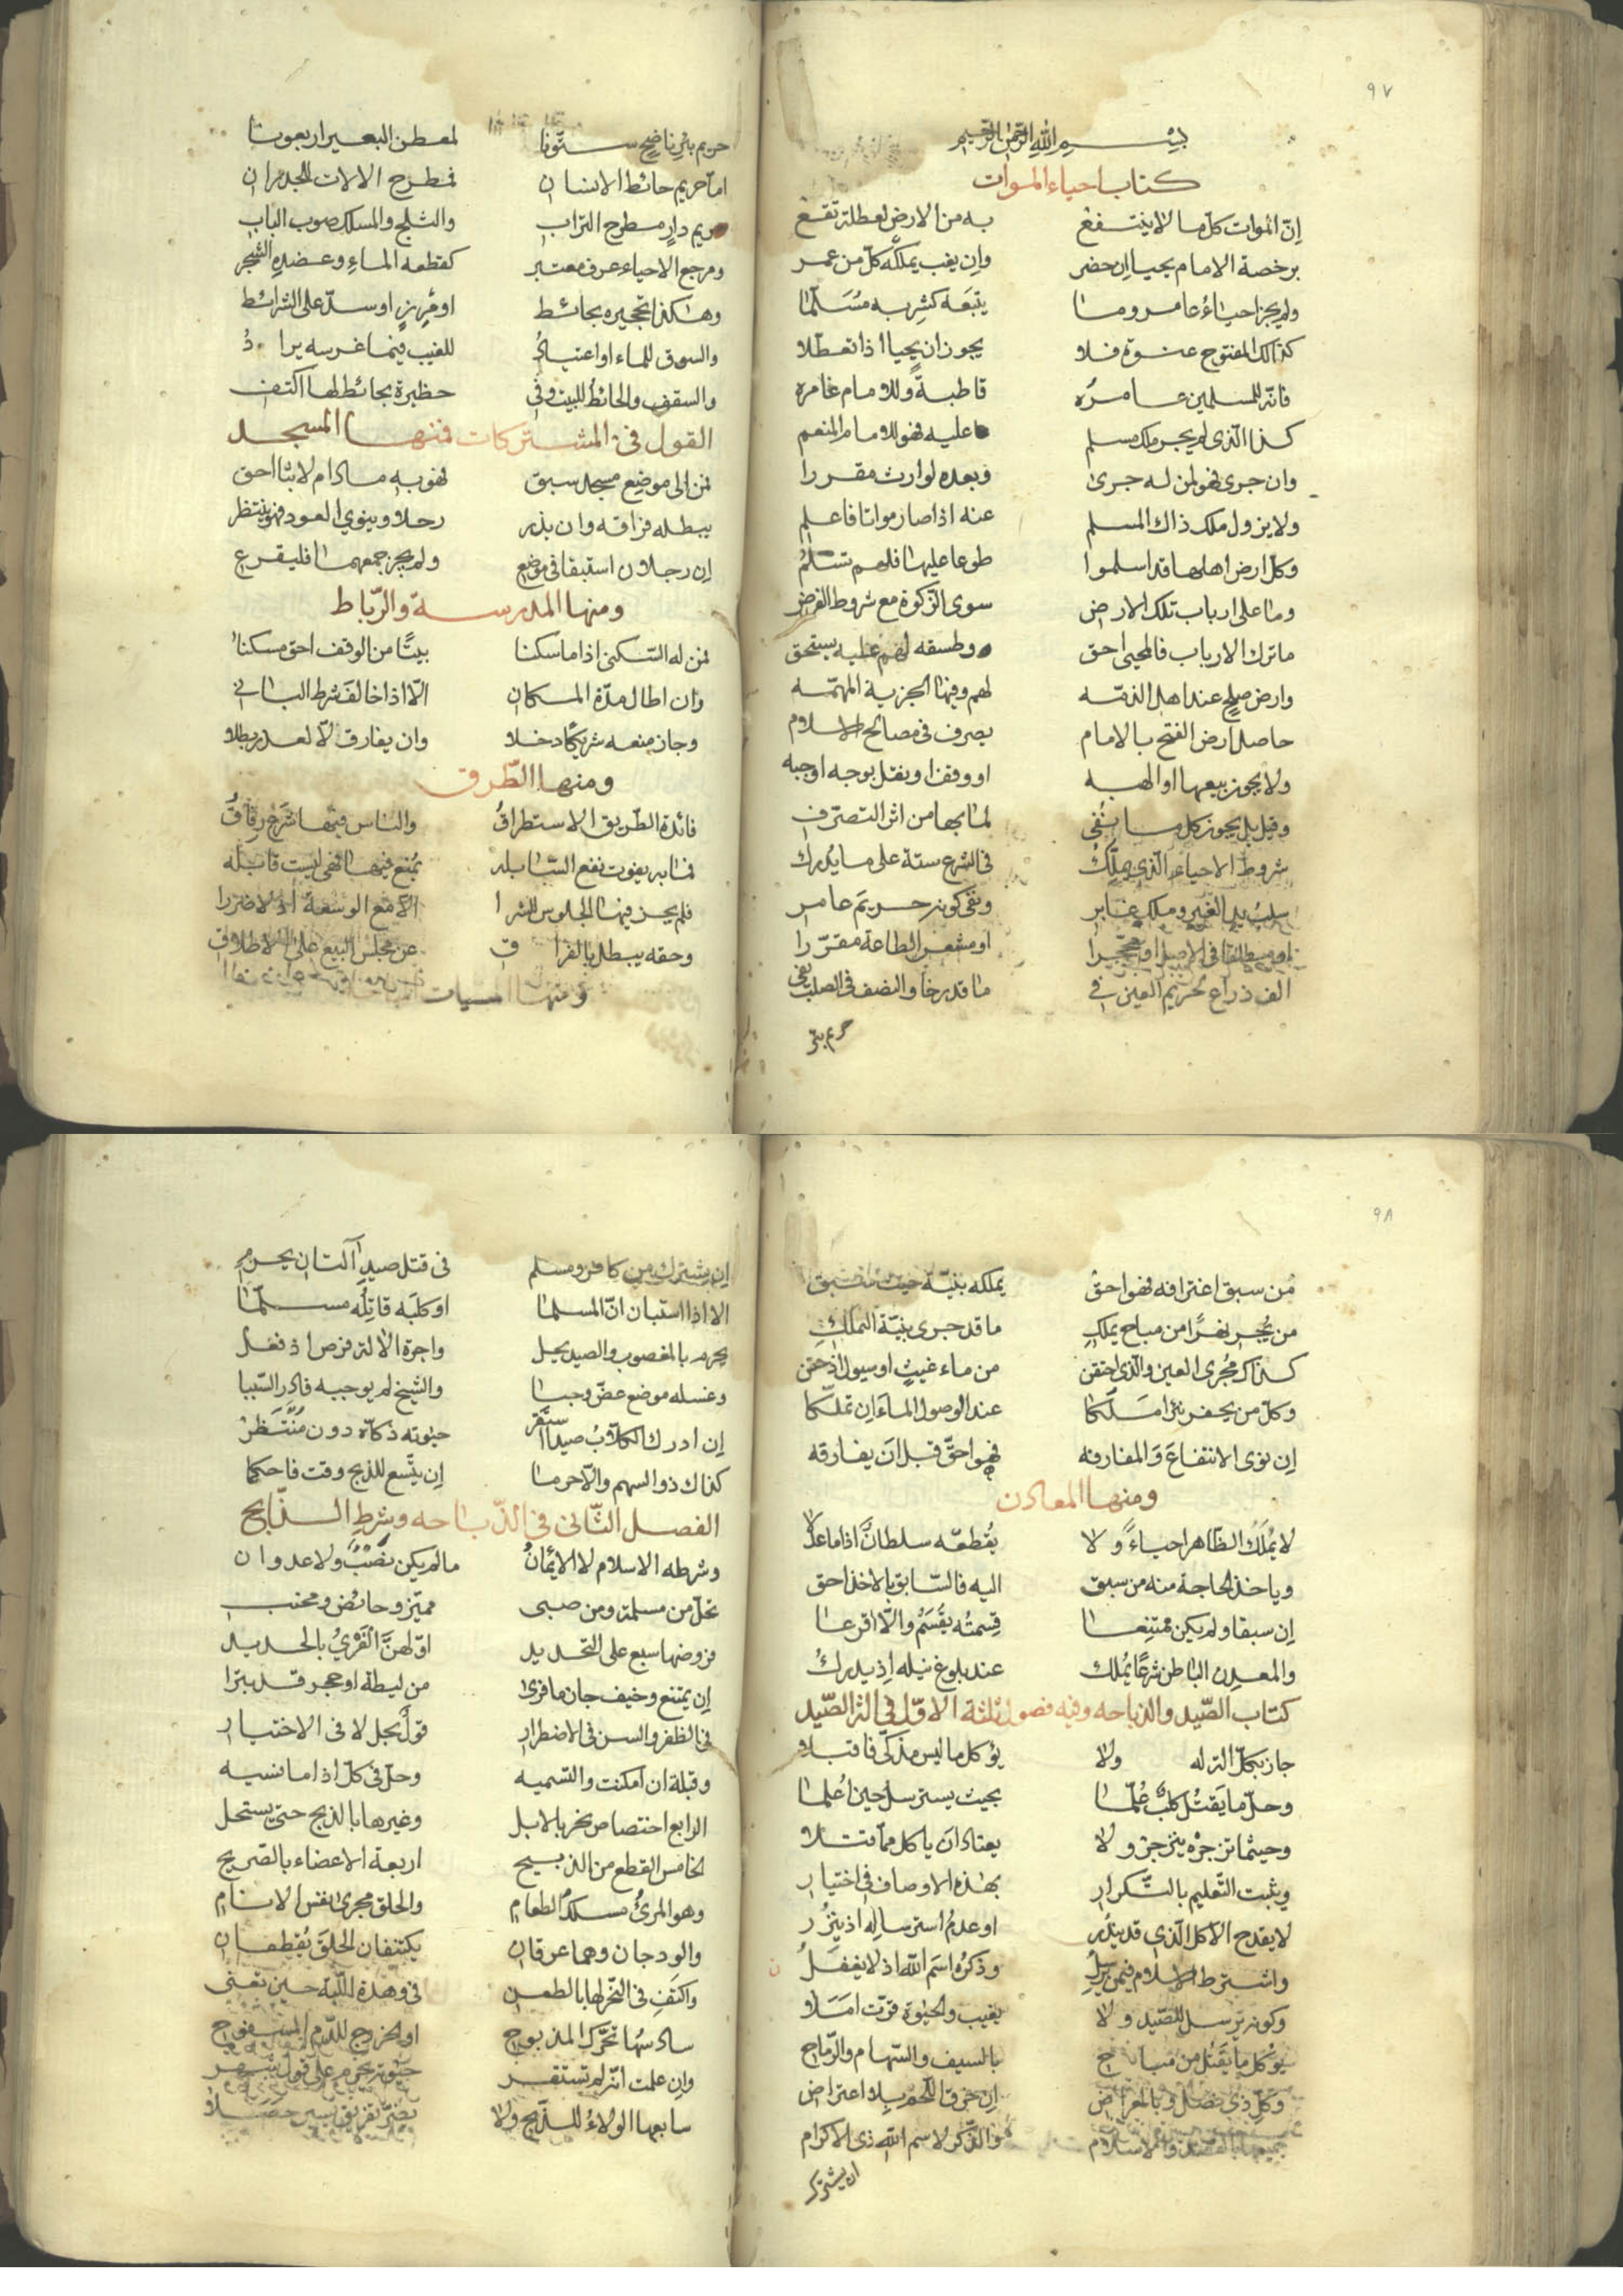 ٩٧
بسم الله الرحمن الرحيم
كتاب احياء الموات
ان الموات كل ما لا ينتفع به من الارض لعطلة تقع
برخصة الامام يحيا ان حضر وان يغب يملكه كل من عمر
ولم يجز احياء عامر وما يتبعه كشربه مسلما
كذلك المفتوح عنوة فلا يجوز ان يحيا اذا تعطلا
فانه للمسلمين عامره قاطبة وللامام غامره
كذا الذي لم يجر ملك مسلم عليه فهو للامام المنعم
وان جرى فهو لمن له جرى وبعده لوارث مقررا
ولا يزول ملك ذاك المسلم عنه اذا صار مواتا فاعلم
وكل ارض اهلها قد اسلموا طوعا عليها فلهم تسلم
وما على ارباب تلك الارض سوى الزكوة مع شروط الفرض
ما ترك الارباب فالمحيى احق وطسقه لهم عليه يستحق
وارض صلح عند اهل الذمه لهم وفيها الجزية المهمه
حاصل ارض الفتح بالامام يصرف في مصالح الاسلام
ولا يجوز بيعها او الهبه او وقفها ونقل بوجه اوجبه
وقيل بل يجوز كل ما نفى لما بها من اثر التصرف
شروط الاحياء الذي يملك في الشرع ستة على ما يدرك
سلب يد الغير وملك غابر ونفى كونه حريم عامر
او مشعر الطاعة مقررا
الف ذراع لحريم العين في ما قد رخا والنصف في الصلب نفى
حريم بئر
حريم بئر ناضح ستونا لمعطن البعير اربعونا
اما حريم حائط الانسان فمطرح الالات للجدران
حريم دار مطرح التراب والثلج والمسلك صوب الباب
ومرجع الاحياء عرف معتبر كقطعه الماء وعضد الشجر
وهكذا تحجيره بحائط او مرز او سد على الشرائط
والسوق للماء او اعتياد للغيب فيما غرسه يراد
والسقف والحائط للبيت وفي حظيرة بحائط لها اكتف
القول في المشتركات فمنها المسجد
فمن الى موضع مسجد سبق فهو به ما دام لابثا احق
يبطله فراقه وان يذر رحلا وينوي العود فهو ينتظر
ان رجلان استبقا في موضع ولم يجز جمعهما فليقرع
ومنها المدرسة والرباط
فمن له السكنى اذا ما سكنا بيتا من الوقف احق مسكنا
وان اطال مدة المكان الا اذا خالف شرط الباني
وجاز منعه شريكا دخلا وان يفارق لا لعذر بطلا
ومنها الطرق
فائدة الطريق الاستطراق والناس فيها شرع رفاق
فما به يفوت نفع السابله يمنع فيها فهي ليست قابله
فلم يجز فيها الجلوس للشرا الا مع الوسعة اذ لا ضررا
وحقه يبطل بالفراق عن مجلس البيع على الاطلاق
ومنها المياه
٩٨
من سبق اغترافه فهو احق يملكه بنية حيث سبق
من يجر نهرا من مباح يملك ما قد جرى بنية التملك
كذاك مجرى العين والذي احتقن من ماء غيث او سيول اذ حقن
وكل من يحفر بئرا ملكا عند الوصول الماء ان تملكا
ان نوى الانتفاع والمفارقه فهو احق قبل ان يفارقه
ومنها المعادن
لا يملك الظاهر احياء ولا يقطعه سلطان اذا ما عدلا
وياخذ الحاجة منه من سبق اليه فالسابق بالاخذ احق
ان سبقا ولم يكن ممتنعا قسمته يقسم والا اقرعا
والمعدن الباطن شرعا يملك عند بلوغ نيله اذ يدرك
كتاب الصيد والذباحه وفيه فصول ثلثة الاول في الة الصيد
جاز بكل الة له ولا يؤكل ما ليس مذكى فاقبلا
وحل ما يقتل كلب علما بحيث يسترسل حين اعلما
وحيثما تزجره ينزجر ولا يعتاد ان ياكل مما قتلا
ويثبت التعليم بالتكرار بهذه الاوصاف في اختيار
لا يقدح الاكل الذي قد يندر او عدم استرساله اذ ينزر
واشترط الاسلام فيمن يرسل وذكره اسم الله اذ لا يغفل
وكونه يرسل للصيد ولا يغيب والحيوة قرت امثلا
يؤكل ما يقتل من مباح بالسيف والسهام والرماح
وكل ذي نصل وبالمعراض ان خرق اللحم بلا اعتراض
جميعها بالقصد والاسلام والذكر لاسم الله ذي الاكرام
ان يشترك
ان يشترك من كافر ومسلم في قتل صيد آلتان يحرم
الا اذا استبان ان المسلما او كلبه قاتله مسلما
يحرم بالمغصوب والصيد يحل واجرة الالة فرض اذ فعل
وغسله موضع عض وجبا والشيخ لم يوجبه فادر السببا
ان ادرك الكلاب صيدا استقر حيوته ذكاه دون منتظر
كذاك ذو السهم والا حرما ان يتسع للذبح وقت فاحكما
الفصل الثاني في الذباحه وشرط الذابح
وشرطه الاسلام لا الايمان ما لم يكن نصب ولا عدوان
تحل من مسلمة ومن صبى مميز وحائض ومجنب
فروضها سبع على التحديد اولهن الفري بالحديد
ان يمتنع وخيف جاز ما فرى من ليطة او حجر قد بترا
في الظفر والسن في الاضطرار قول بحل لا في الاختيار
وقبلة ان امكنت والتسميه وحل في كل اذا ما نسيه
الرابع اختصاص نحر بالابل وغيرها بالذبح حتى يستحل
الخامس القطع من الذبيح اربعة الاعضاء بالصريح
وهو المرئ مسلك الطعام والحلق مجرى نفس الانام
والودجان وهما عرقان يكتنفان الحلق يقطعان
واكتف في النحر لها بالطعن في وهدة اللبة حين تعنى
سادسها تحرك المذبوح او الخروج للدم المسفوح
وان علمت انه لم تستقر حيوته يحرم على قول شهر
سابعها الولاء للذبح ولا يضر تفريق يسير حصلا